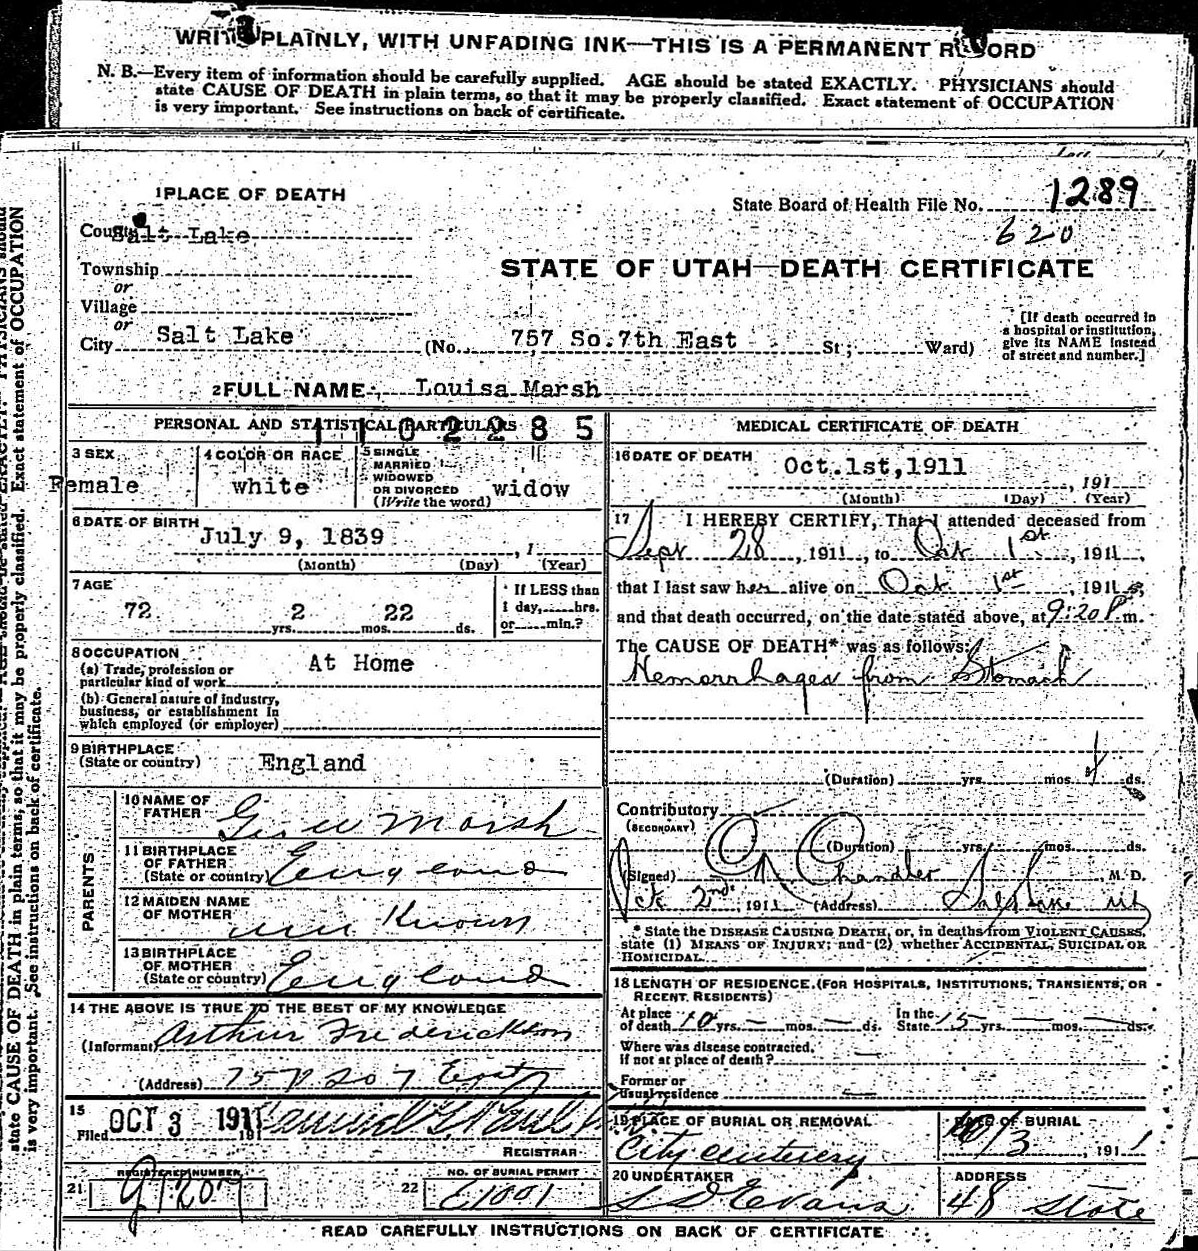 WRITE PLAINLY, WITH UNFADING INK—THIS IS A PERMANENT RECORD
N. B.—Every item of information should be carefully supplied. AGE should be stated EXACTLY. PHYSICIANS should
state CAUSE OF DEATH in plain terms, so that it may be properly classified. Exact statement of OCCUPATION
is very important. See instructions on back of certificate.
1 PLACE OF DEATH
State Board of Health File No. 1289
620
County Salt Lake
STATE OF UTAH—DEATH CERTIFICATE
Township
or
Village
or
City Salt Lake (No. 757 So. 7th East St; Ward)
[If death occurred in
a hospital or institution,
give its NAME instead
of street and number.]
2 FULL NAME Louisa Marsh
PERSONAL AND STATISTICAL PARTICULARS
1102285
3 SEX
Female
4 COLOR OR RACE
white
5 SINGLE
MARRIED
WIDOWED
OR DIVORCED
(Write the word)
widow
6 DATE OF BIRTH
July 9, 1839 , 1
(Month) (Day) (Year)
7 AGE
72 yrs. 2 mos. 22 ds.
If LESS than
1 day, hrs.
or min.?
8 OCCUPATION
(a) Trade, profession or
particular kind of work At Home
(b) General nature of industry,
business, or establishment in
which employed (or employer)
9 BIRTHPLACE
(State or country) England
PARENTS
10 NAME OF
FATHER Geo W Marsh
11 BIRTHPLACE
OF FATHER
(State or country) England
12 MAIDEN NAME
OF MOTHER un Known
13 BIRTHPLACE
OF MOTHER
(State or country) England
14 THE ABOVE IS TRUE TO THE BEST OF MY KNOWLEDGE
(Informant) Arthur Frederickson
(Address) 757 So 7 East
15
Filed OCT 3 1911
REGISTRAR
REGISTERED NUMBER
21
NO. OF BURIAL PERMIT
22 E1001
MEDICAL CERTIFICATE OF DEATH
16 DATE OF DEATH Oct. 1st, 1911
, 191
(Month) (Day) (Year)
17 I HEREBY CERTIFY, That I attended deceased from
Sept 28, 1911, to Oct 1st, 1911,
that I last saw her alive on Oct 1st, 1911,
and that death occurred, on the date stated above, at 9:20 P.m.
The CAUSE OF DEATH* was as follows:
Hemorrhages from Stomach
(Duration) yrs. mos. ds.
Contributory
(SECONDARY)
(Duration) yrs. mos. ds.
(Signed) Chandler M. D.
Oct 2nd, 1911 (Address) Salt Lake
* State the DISEASE CAUSING DEATH, or, in deaths from VIOLENT CAUSES,
state (1) MEANS OF INJURY; and (2) whether ACCIDENTAL, SUICIDAL OR
HOMICIDAL.
18 LENGTH OF RESIDENCE (FOR HOSPITALS, INSTITUTIONS, TRANSIENTS, OR
RECENT RESIDENTS)
At place
of death 10 yrs. — mos. — ds.
In the
State 15 yrs. — mos. — ds.
Where was disease contracted,
if not at place of death? —
Former or
usual residence —
19 PLACE OF BURIAL OR REMOVAL
City Cemetery
DATE OF BURIAL
10/3, 1911
20 UNDERTAKER
S D Evans
ADDRESS
48 State
READ CAREFULLY INSTRUCTIONS ON BACK OF CERTIFICATE
state CAUSE OF DEATH in plain terms, so that it may be properly classified. Exact statement of OCCUPATION
is very important. See instructions on back of certificate.